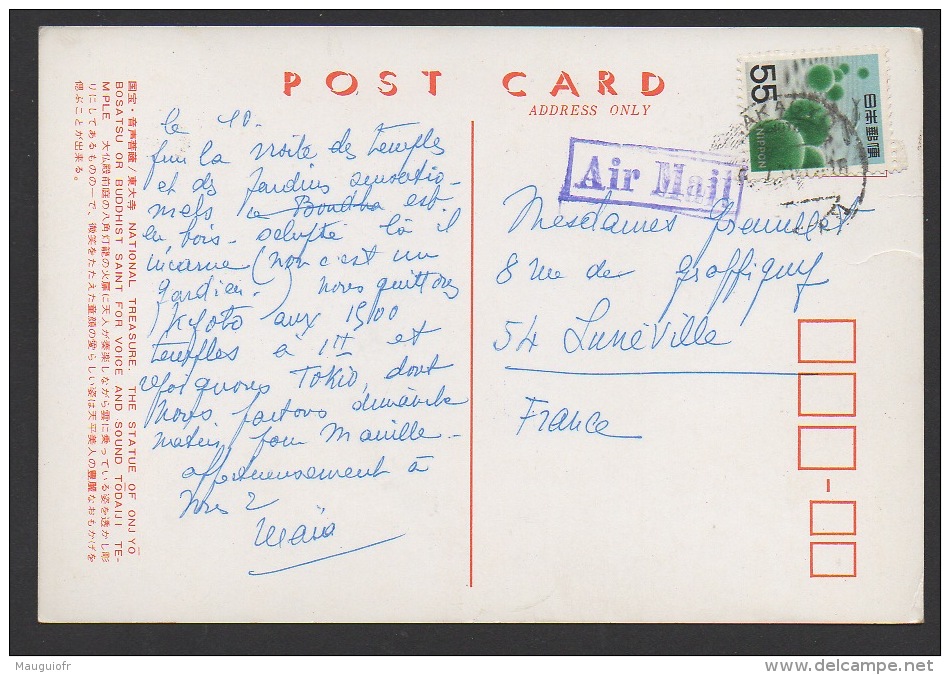 POST CARD
ADDRESS ONLY
55
NIPPON
日本郵便
Air Mail
国宝・音声菩薩/東大寺 NATIONAL TREASURE. THE STATUE OF ONJYŌ
BOSATSU OR BUDDHIST SAINT FOR VOICE AND SOUND TŌDAIJI TE-
MPLE. 大仏殿前庭の八角灯籠の火扉に天人が奏楽しながら雲に乗っている姿を透かし彫
りにしてあるもので、微笑をたたえた童顔の愛らしい姿は天平美人の豊麗なおもかげを
偲ぶことが出来る。
le 10.
la visite des temples
et des jardins sensatio-
nels le Bouddha est
en bois. là il
incarne (non c'est un
gardien.) nous quittons
Kyoto aux 1500
temples à et
TOKIO, dont
nous partons dimanche
matin pour Manille -
affectueusement à
vous 2
Maïa
Mesdames
8 rue de Graffigny
54 Lunéville
France
Mauguiofr
www.delcampe.net